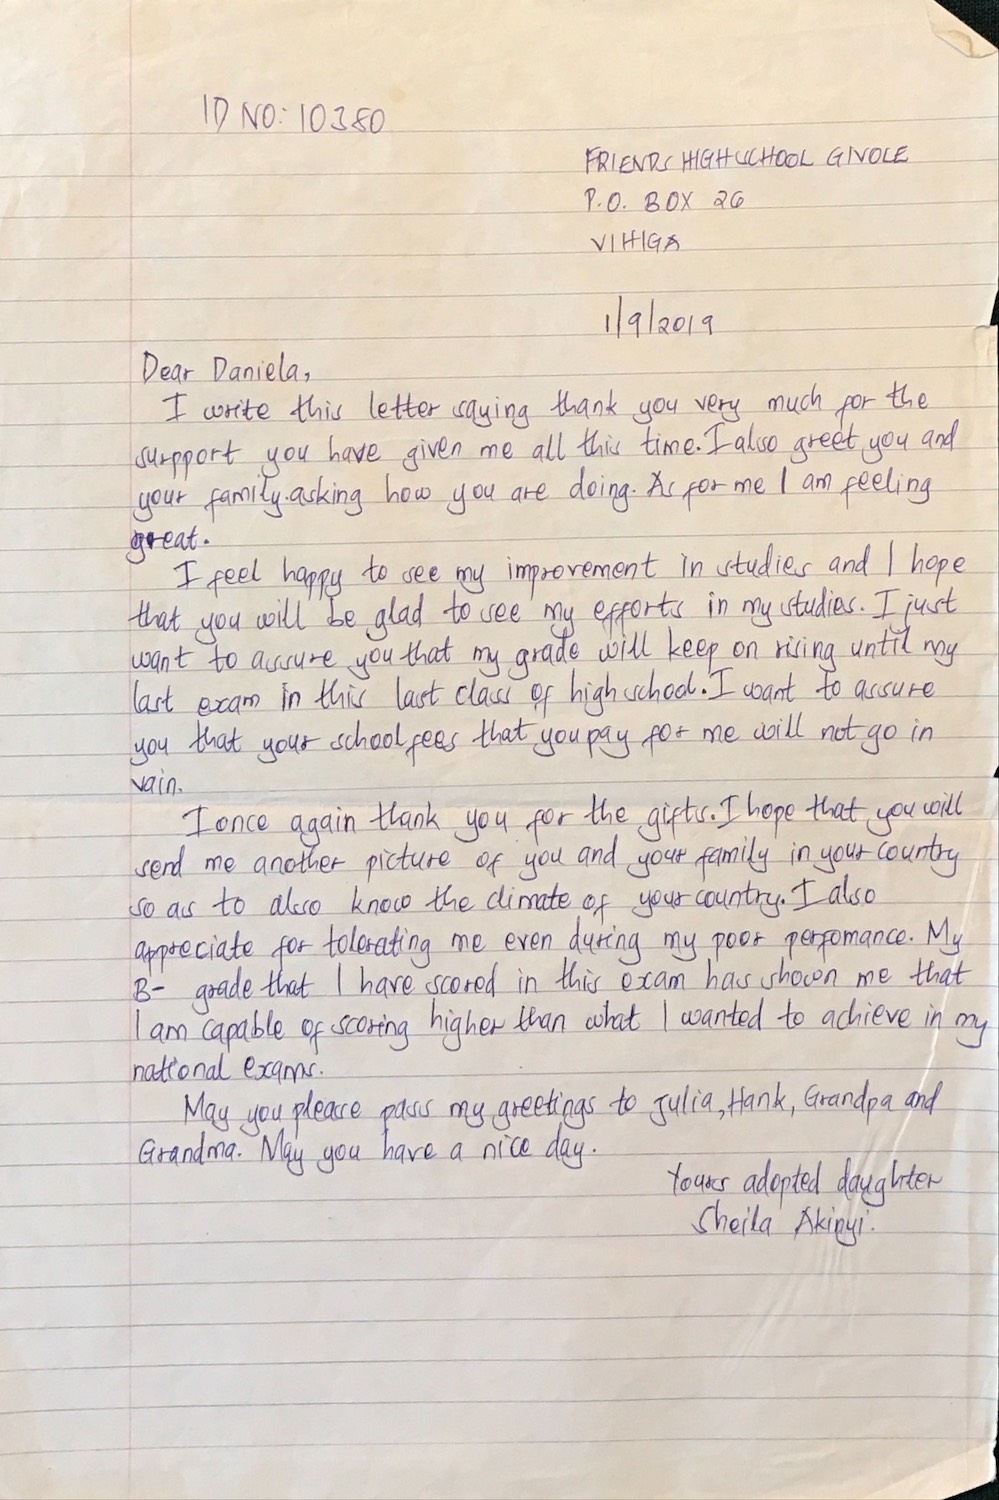 ID NO: 10380
FRIENDS HIGH SCHOOL GIVOLE
P.O. BOX 26
VIHIGA
1/9/2019
Dear Daniela,
I write this letter saying thank you very much for the
surpport you have given me all this time. I also greet you and
your family. asking how you are doing. As for me I am feeling
great.
I feel happy to see my improvement in studies and I hope
that you will be glad to see my efforts in my studies. I just
want to assure you that my grade will keep on rising until my
last exam in this last class of high school. I want to assure
you that your school fees that you pay for me will not go in
vain.
I once again thank you for the gifts. I hope that you will
send me another picture of you and your family in your country
so as to also know the climate of your country. I also
appreciate for tolerating me even during my poor perfomance. My
B- grade that I have scored in this exam has shown me that
I am capable of scoring higher than what I wanted to achieve in my
national exams.
May you please pass my greetings to Julia, Hank, Grandpa and
Grandma. May you have a nice day.
Yours adopted daughter
Sheila Akinyi.